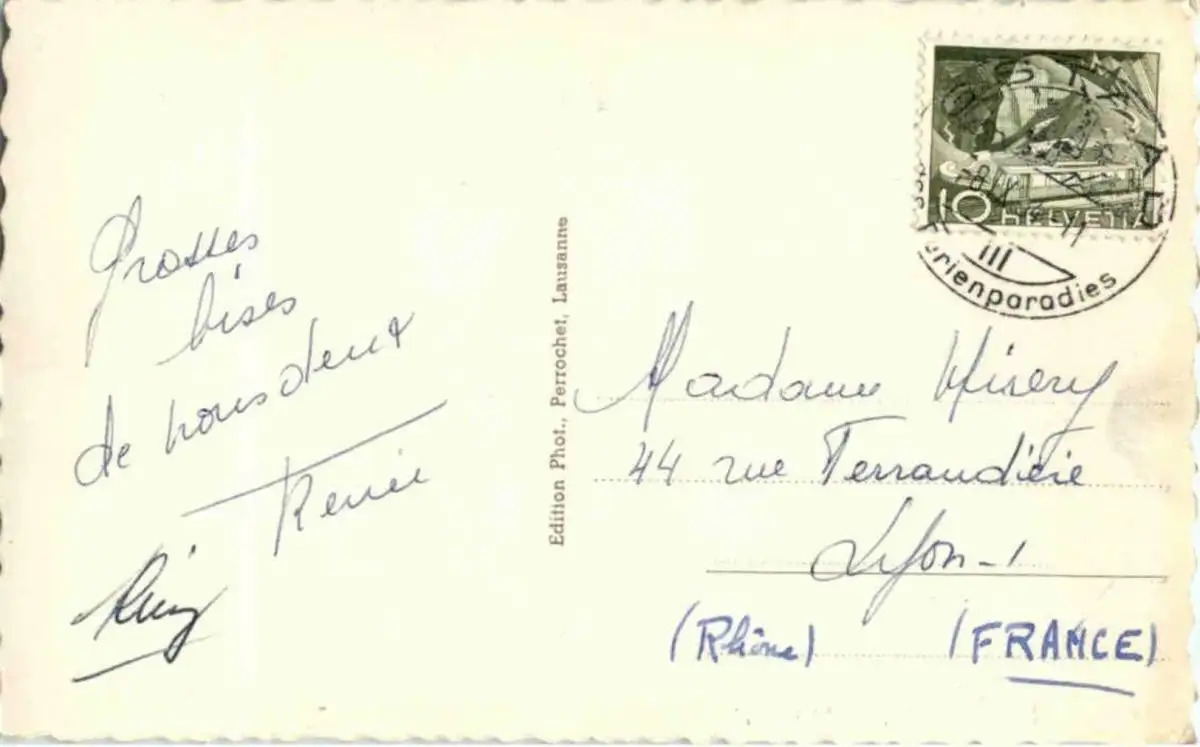 Grosses
bises
de nous deux
Renée
Edition Phot., Perrochet, Lausanne
10 HELVETIA
GSTAAD
Ferienparadies
Madame Misery
44 rue Ferrandière
Lyon-1
(Rhône) (FRANCE)